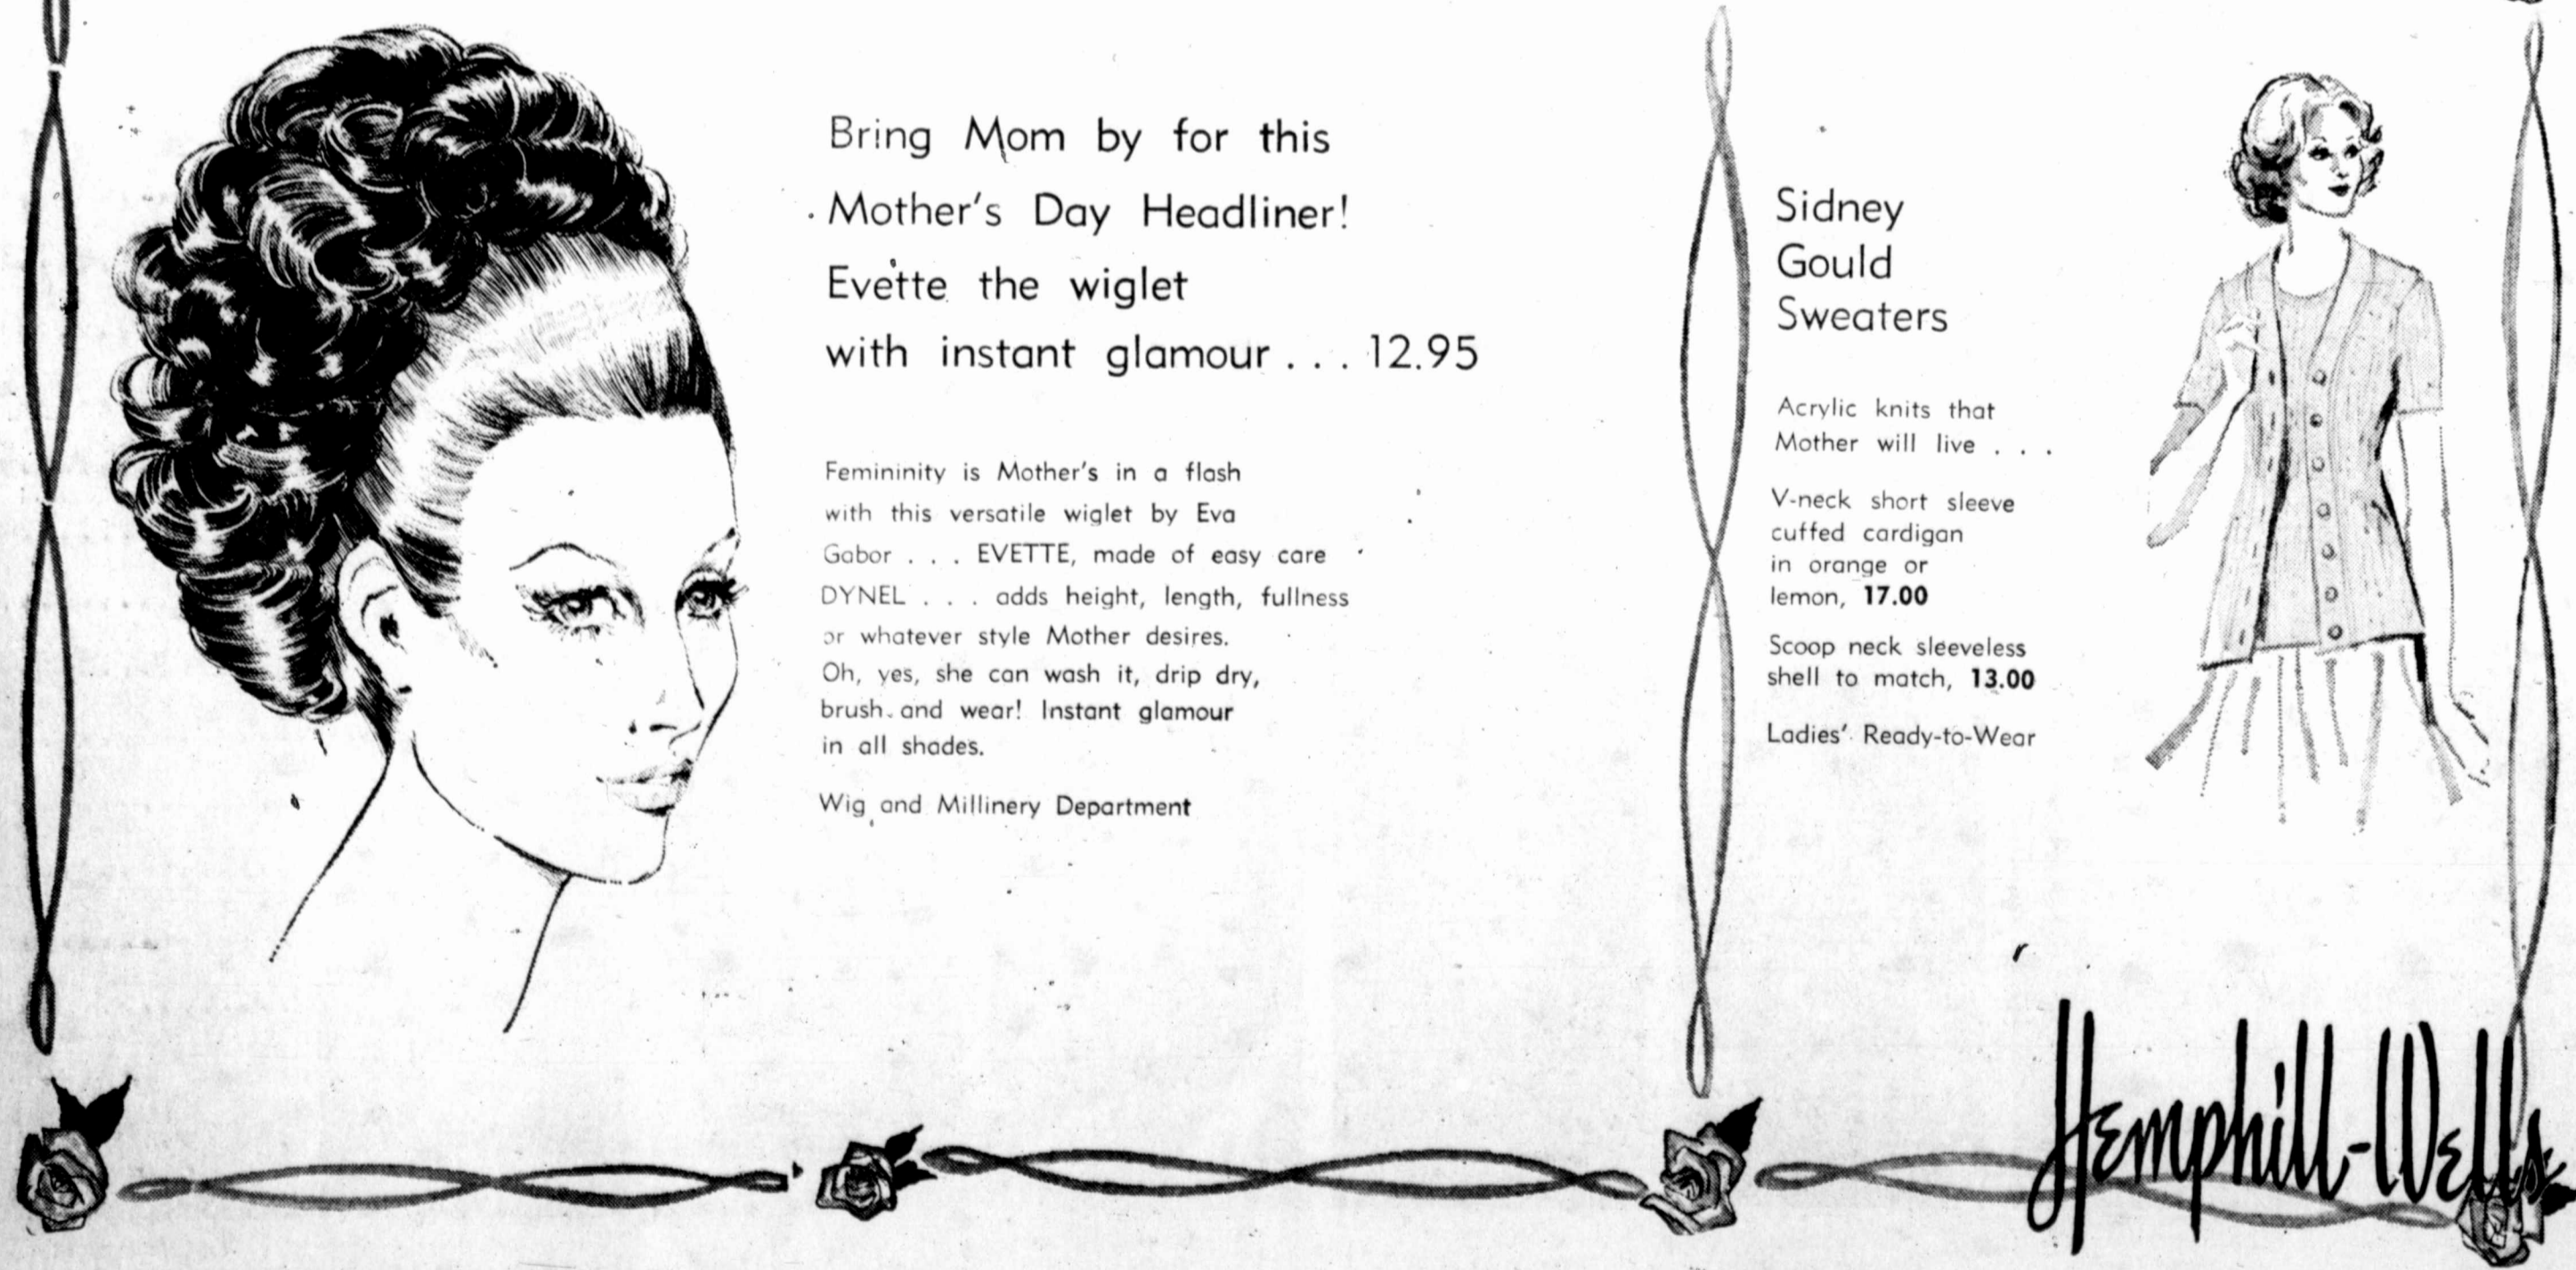 Bring Mom by for this
Mother's Day Headliner!
Evette the wiglet
with instant glamour . . . 12.95
Femininity is Mother's in a flash
with this versatile wiglet by Eva
Gabor . . . EVETTE, made of easy care
DYNEL . . . adds height, length, fullness
or whatever style Mother desires.
Oh, yes, she can wash it, drip dry,
brush and wear! Instant glamour
in all shades.
Wig and Millinery Department
Sidney
Gould
Sweaters
Acrylic knits that
Mother will live . . .
V-neck short sleeve
cuffed cardigan
in orange or
lemon, 17.00
Scoop neck sleeveless
shell to match, 13.00
Ladies' Ready-to-Wear
Hemphill-Wells